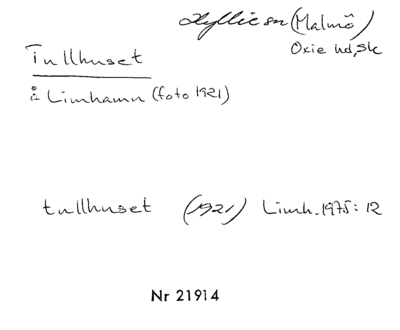 Hyllie sn (Malmö)
Oxie hd, Sk
Tullhuset
i Limhamn (foto 1921)
tullhuset (1921) Limh. 1975: 12
Nr 21914